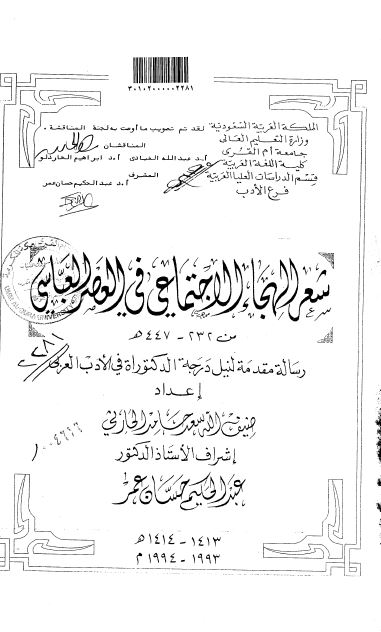 ٣٠١٠٢٠٠٠٠٠٢٢٨١
المملكة العربية السعودية
وزارة التعليم العالى
جامعة أم القرى
كلية اللغة العربية
قسم الدراسات العليا العربية
فرع الأدب
لقد تم تصويب ما أوصت به لجنة المناقشة .
المناقشان
أ.د عبدالله العبادى أ.د ابراهيم الحاردلو
المشرف
أ.د عبدالحكيم حسان عمر
شعر الهجاء الاجتماعي في العصر العباسي
من ٢٣٢ - ٤٤٧ هـ
رسالة مقدمة لنيل درجة الدكتوراة في الأدب العربي
إعداد
ضيف الله سعد حامد الحارثي
إشراف الأستاذ الدكتور
عبد الحكيم حسان عمر
١٤١٣ - ١٤١٤ هـ
١٩٩٣ - ١٩٩٤ م